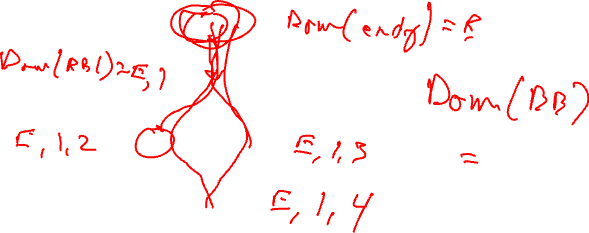 Dom(entry) = E
Dom(BB1) = E, 1
Dom(BB)
=
E, 1, 2
E, 1, 3
E, 1, 4